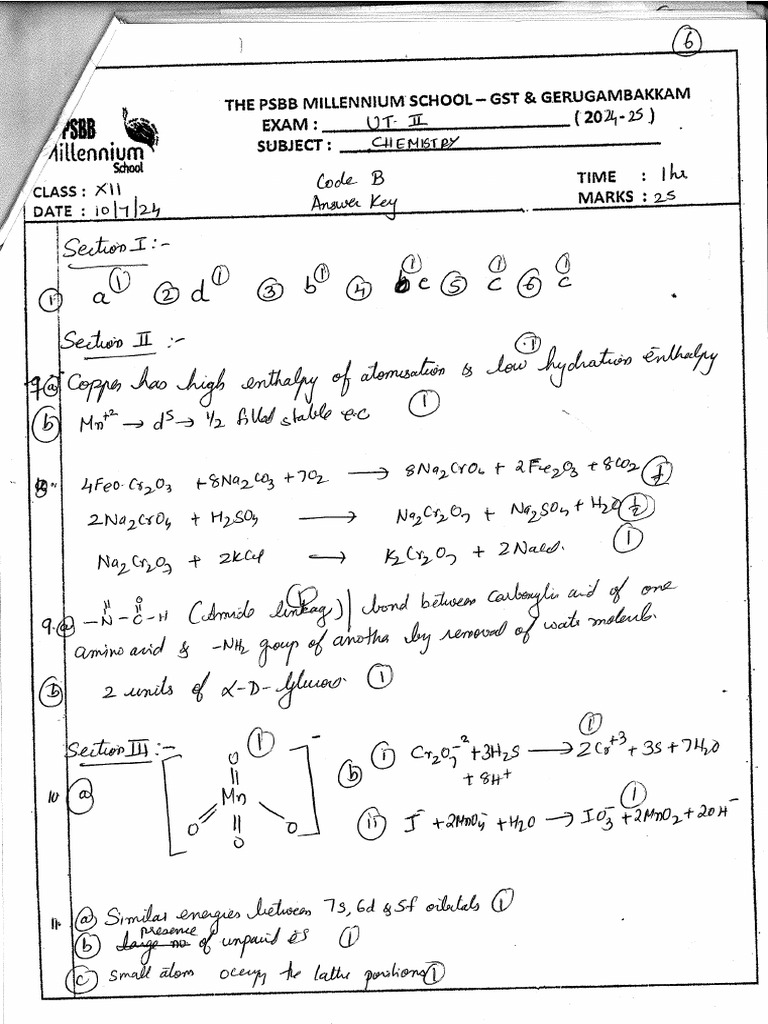 6
THE PSBB MILLENNIUM SCHOOL – GST & GERUGAMBAKKAM
EXAM : UT- II (2024-25)
SUBJECT : CHEMISTRY
PSBB
Millennium
School
CLASS : XII
DATE : 10/7/24
Code B
Answer Key
TIME : 1 hr
MARKS : 25
Section I :-
1 a 1 2 d 1 3 b 1 4 c 1 5 c 1 6 c 1
Section II :-
a Copper has high enthalpy of atomisation & low hydration enthalpy 1
b Mn+2 → d5 → 1/2 filled stable e.c 1
8. 4FeO.Cr2O3 + 8Na2CO3 + 7O2 → 8Na2CrO4 + 2Fe2O3 + 8CO2
2Na2CrO4 + H2SO4 → Na2Cr2O7 + Na2SO4 + H2O 1/2
Na2Cr2O7 + 2KCl → K2Cr2O7 + 2NaCl. 1
9. a -N-C-H (Amide linkage) | bond between carboxylic acid of one
H O
amino acid & -NH2 group of another by removal of water molecule.
b 2 units of α-D-Glucose. 1
Section III :-
10 a O Mn O O O - 1
b i Cr2O7-2 + 3H2S → 2Cr+3 + 3S + 7H2O 1
+ 8H+
ii I- + 2MnO4- + H2O → IO3- + 2MnO2 + 2OH- 1
11. a Similar energies between 7s, 6d & 5f orbitals 1
b presence of unpaired es 1
c small atom occupy the lattice positions 1